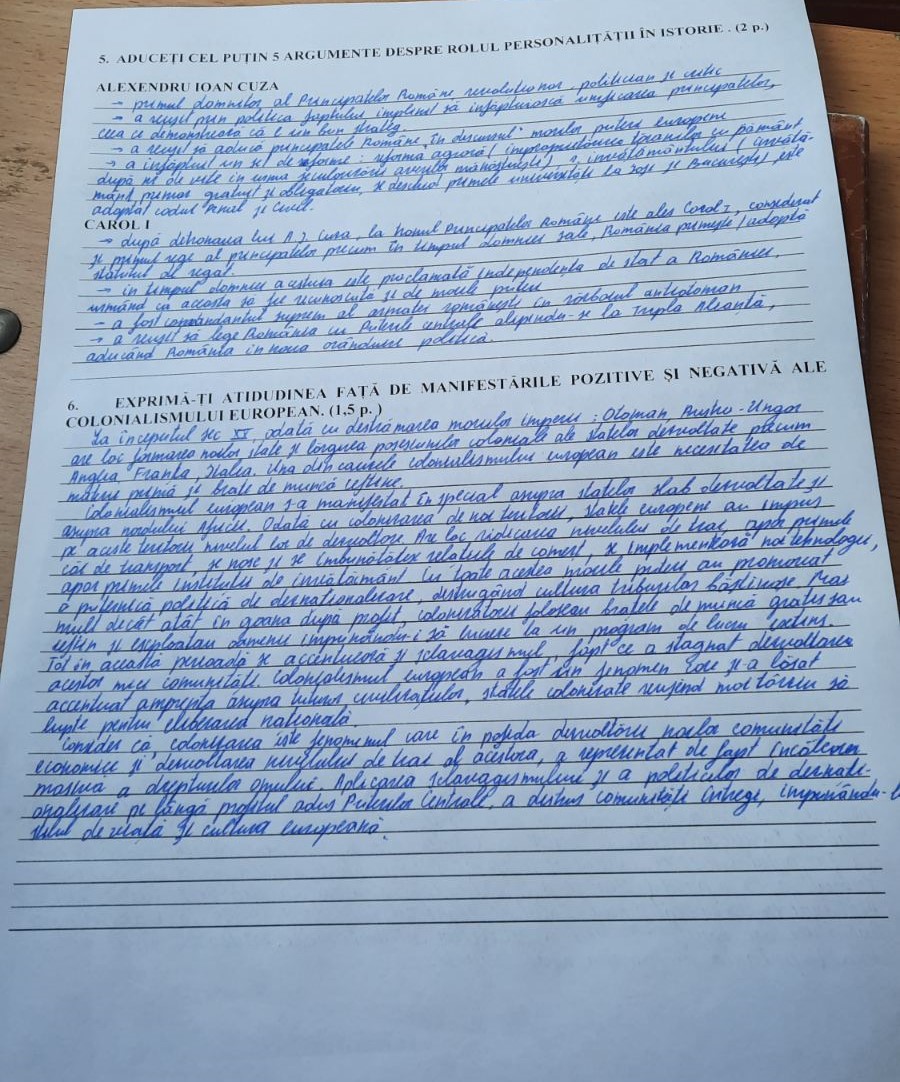 5. ADUCEȚI CEL PUȚIN 5 ARGUMENTE DESPRE ROLUL PERSONALITĂȚII ÎN ISTORIE . (2 p.)
ALEXENDRU IOAN CUZA
→ primul domnitor al Principatelor Române revoluționar, politician și critic
→ a reușit prin politica faptului împlinit să înfăptuiască unificarea principatelor,
ceea ce demonstrează că e un bun strateg
→ a reușit să aducă principatele Române "în discursul" marilor puteri europene
→ a înfăptuit un set de reforme: reforma agrară (împroprietărirea țăranilor cu pământ
după nr de vite în urma secularizării averilor mănăstirești), învățământului (învăță-
mânt primar gratuit și obligatoriu, se deschid primele universități la Iași și București) este
adoptat codul Penal și Civil.
CAROL I
→ după detronarea lui A. I. Cuza, la tronul Principatelor Române este ales Carol I, considerat
și primul rege al principatelor precum în timpul domniei sale, România primește/adoptă
statutul de regat.
→ în timpul domniei acestuia este proclamată Independența de stat a României,
urmând ca aceasta să fie recunoscută și de marile puteri
→ a fost comandantul suprem al armatei românești în războiul antiotoman
→ a reușit să lege România cu Puterile centrale alipindu-se la Tripla Alianță,
aducând România în noua orânduire politică.
6. EXPRIMĂ-ȚI ATIDUDINEA FAȚĂ DE MANIFESTĂRILE POZITIVE ȘI NEGATIVĂ ALE
COLONIALISMULUI EUROPEAN. (1,5 p. )
La începutul sec XX, odată cu destrămarea marilor imperii: Otoman, Austro-Ungar
are loc formarea noilor state și lărgirea posesiunilor coloniale ale statelor dezvoltate precum
Anglia, Franța, Italia. Una din cauzele colonialismului european este necesitatea de
materie primă și brațe de muncă ieftine.
Colonialismul european s-a manifestat în special asupra statelor slab dezvoltate și
asupra nordului Africii. Odată cu colonizarea de noi teritorii, statele europene au impus
pe aceste teritorii nivelul lor de dezvoltare Are loc ridicarea nivelului de trai, apar primele
căi de transport, se nasc și se îmbunătățesc relațiile de comerț, se implementează noi tehnologii,
apar primele instituții de învățământ. Cu toate acestea marile puteri au promovat
o puternică politică de deznaționalizare, distrugând cultura triburilor băștinașe. Mai
mult decât atât în goana după profit, colonizatorii foloseau brațele de muncă gratis sau
ieftin și exploatau oamenii impunându-i să lucreze la un program de lucru extins.
Tot în această perioadă se accentuează și sclavagismul, fapt ce a stagnat dezvoltarea
acestor mici comunități. Colonialismul european a fost un fenomen care și-a lăsat
accentuat amprenta asupra tuturor civilizațiilor, statele colonizate reușind mai târziu să
lupte pentru eliberarea națională.
Consider că, colonizarea este fenomenul care în pofida dezvoltării noilor comunități
economice și dezvoltarea nivelului de trai al acestora, a reprezentat de fapt încălcarea
masiva a drepturilor omului. Aplicarea sclavagismului și a politicilor de deznați-
onalizare pe lângă profitul adus Puterilor Centrale, a distrus comunități întrege, impunându-l
stilul de viață și cultura europeană.